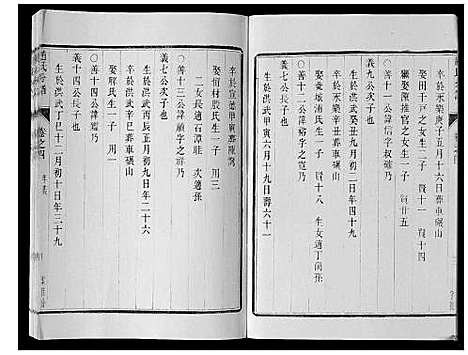 卒於永樂庚子五月十六日葬車碾山
娶田千戶之女生二子 賢十一
獼娶陳推官之女生一子 賢廿五
義九公次子也
○善十一公諱信字叔確乃
生於洪武庚午九月初九日年四十九
娶姜城湎氏生一子 賢十八 生女適丁尚孫
○善十二公諱裕字之寬乃
義七公長子也
生於洪武甲寅八月十九日壽六十一
卒於宣德甲寅葬陳窩
娶恒村殷氏生一子 用三
二女長適石潭莊 次適孫
○善十三公諱顧字子祥乃
義七公次子也
生於洪武丙辰正月初九日年二十六
卒於洪武辛巳葬車碾山
娶解氏生一子 用一
○善十四公諱寬乃
義十四公長子也
生於洪武丁巳十二月初十日年三十九
氏宗譜
卷之四